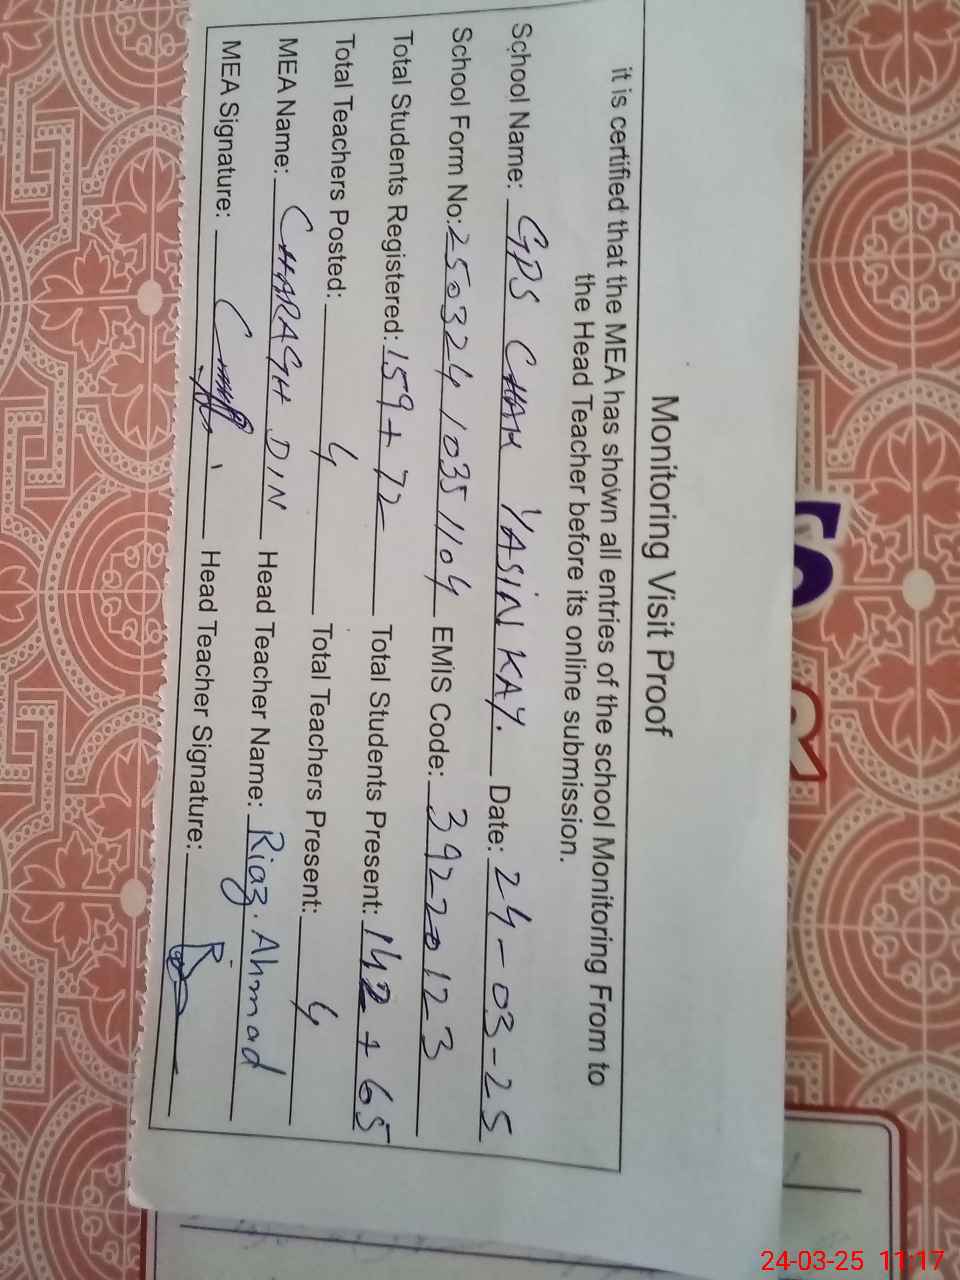 Monitoring Visit Proof
it is certified that the MEA has shown all entries of the school Monitoring From to
the Head Teacher before its online submission.
School Name: GPS CHAH YASIN KAY. Date: 24-03-25
School Form No: 25032410351104 EMIS Code: 39220123
Total Students Registered: 159+72 Total Students Present: 142+65
Total Teachers Posted: 4 Total Teachers Present: 4
MEA Name: CHARAGH DIN Head Teacher Name: Riaz. Ahmad
MEA Signature: Head Teacher Signature:
24-03-25 11:17